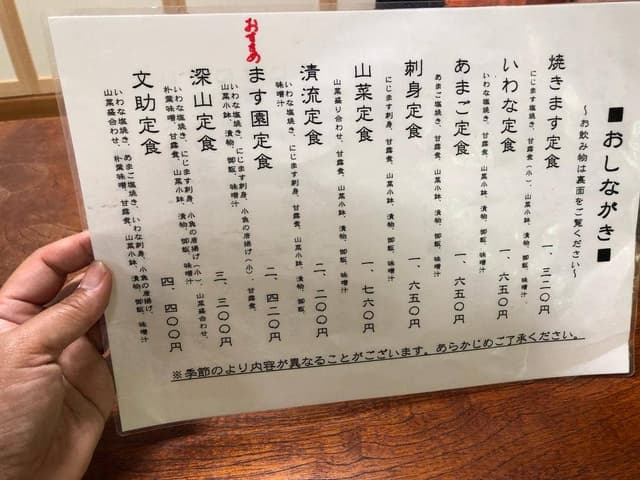 ■おしながき■
～お飲み物は裏面をご覧ください～
焼きます定食
にじます塩焼き、甘露煮（小）、山菜小鉢、漬物、御飯、味噌汁
一、三二〇円
いわな定食
いわな塩焼き、甘露煮、山菜小鉢、漬物、御飯、味噌汁
一、六五〇円
あまご定食
あまご塩焼き、甘露煮、山菜小鉢、漬物、御飯、味噌汁
一、六五〇円
刺身定食
にじます刺身、甘露煮、山菜小鉢、漬物、御飯、味噌汁
一、六五〇円
山菜定食
山菜盛り合わせ、甘露煮、山菜小鉢、漬物、御飯、味噌汁
一、七六〇円
清流定食
いわな塩焼き、にじます刺身、甘露煮、山菜小鉢、漬物、御飯、
味噌汁
二、二〇〇円
おすすめ
ます園定食
いわな塩焼き、にじます刺身、小魚の唐揚げ（小）、甘露煮、
山菜小鉢、漬物、御飯、味噌汁
二、四二〇円
深山定食
いわな塩焼き、にじます刺身、小魚の唐揚げ（小）、山菜盛合わせ、
朴葉味噌、甘露煮、山菜小鉢、漬物、御飯、味噌汁
三、三〇〇円
文助定食
いわな塩焼き、あまご塩焼き、いわな刺身、小魚の唐揚げ、
山菜盛合わせ、朴葉味噌、甘露煮、山菜小鉢、漬物、御飯、味噌汁
四、四〇〇円
※季節のより内容が異なることがございます。あらかじめご了承ください。